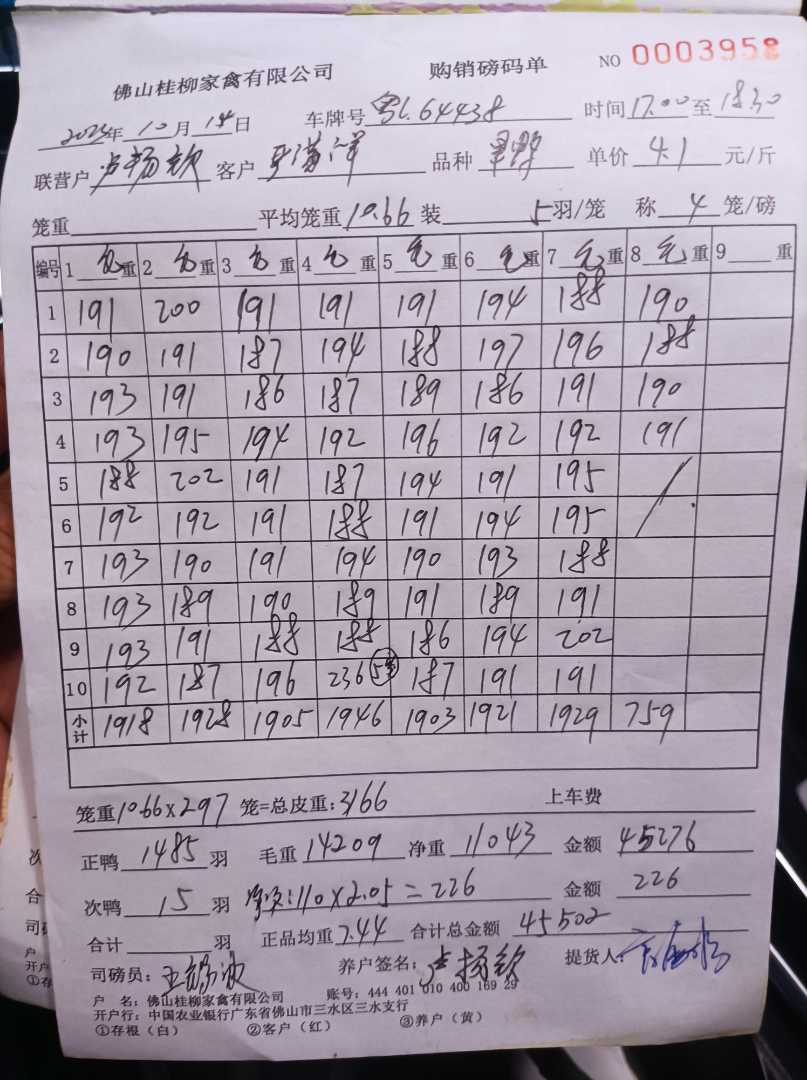 佛山桂柳家禽有限公司 购销磅码单 NO 0003958
2023年 10月 14日 车牌号 粤L.64438 时间 17.00 至 18.30
联营户 卢扬钦 客户 品种 单价 4.1 元/斤
笼重 平均笼重 10.66 装 5 羽/笼 称 4 笼/磅
编号 1 毛重 2 毛重 3 毛重 4 毛重 5 毛重 6 毛重 7 毛重 8 毛重 9 重
1 191 200 191 191 191 194 188 190
2 190 191 187 194 188 197 196 188
3 193 191 186 187 189 186 191 190
4 193 195 194 192 196 192 192 191
5 188 202 191 187 194 191 195 /
6 192 192 191 188 191 194 195
7 193 190 191 194 190 193 188
8 193 189 190 189 191 189 191
9 193 191 188 188 186 194 202
10 192 187 196 236 5笼 187 191 191
小计 1918 1928 1905 1946 1903 1921 1929 759
笼重 10.66×297 笼=总皮重: 3166 上车费
正鸭 1485 羽 毛重 14209 净重 11043 金额 45276
次鸭 15 羽 净次: 110×2.05=226 金额 226
合计 羽 正品均重 7.44 合计总金额 45502
司磅员: 养户签名: 卢扬钦 提货人:
户 名: 佛山桂柳家禽有限公司 账号: 444 401 010 400 169 29
开户行: 中国农业银行广东省佛山市三水区三水支行
①存根(白) ②客户(红) ③养户(黄)